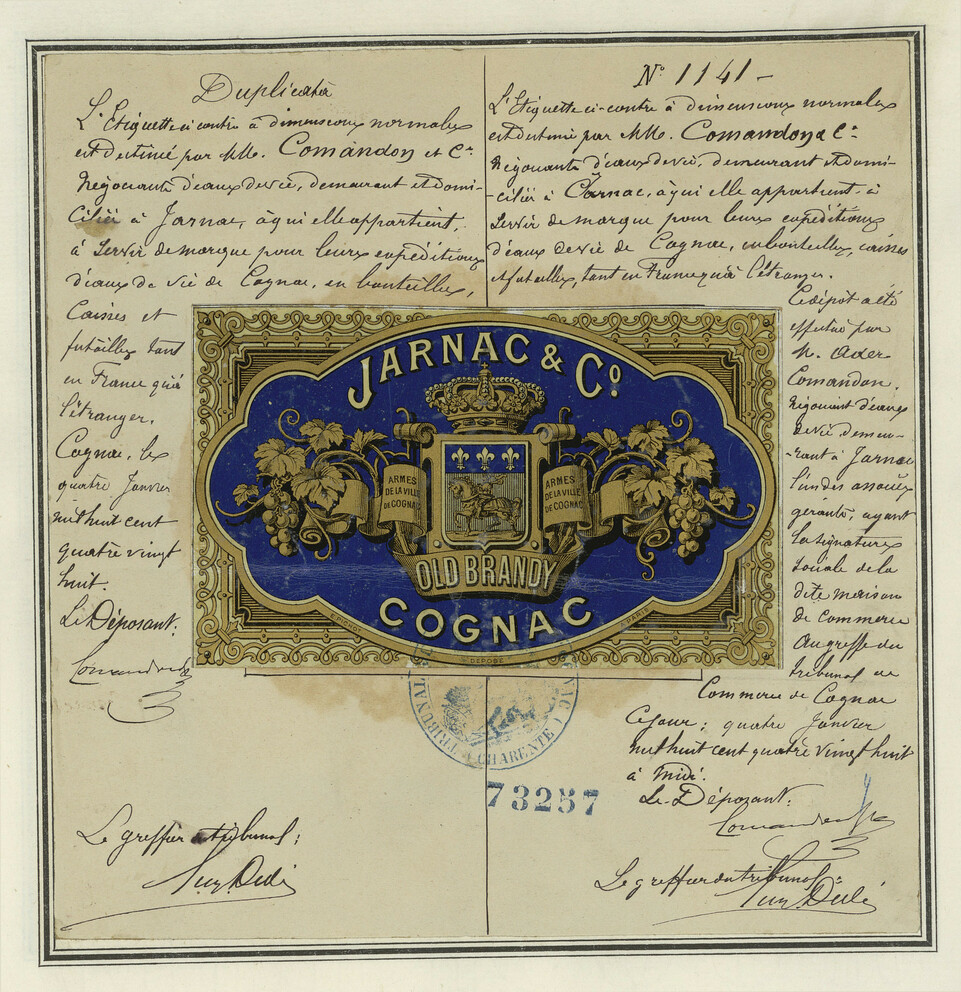 Duplicata
L'Etiquette ci contre à dimensions normales
est destinée par MM. Comandon et Cie
Négociants d'eaux de vie, demeurant et domi-
ciliés à Jarnac, à qui elle appartient,
à servir de marque pour leurs expéditions
d'eaux de vie de Cognac, en bouteilles,
Caisses et
futailles tant
en France qu'à
l'étranger.
Cognac, le
quatre Janvier
mil huit cent
quatre vingt
huit.
Le Déposant:
Comandon
Le greffier du tribunal:
No 1141-
L'Etiquette ci-contre à dimensions normales
est destinée par MM. Comandon & Cie
Négociants d'eaux de vie, demeurant et domi-
-ciliés à Jarnac, à qui elle appartient, à
servir de marque pour leurs expéditions
d'eaux de vie de Cognac, en bouteilles, caisses
et futailles, tant en France qu'à l'étranger.
Ce dépôt a été
effectué par
M.
Comandon,
Négociant d'eaux
de vie, demeu-
-rant à Jarnac
l'un des associés
gérants, ayant
la signature
sociale de la
dite maison
de commerce
au greffe du
tribunal de
Commerce de Cognac
Ce jour; quatre Janvier
mil huit cent quatre vingt huit
à midi.
Le Déposant:
Comandon
Le greffier du tribunal:
JARNAC & Co
ARMES
DE LA VILLE
DE COGNAC
ARMES
DE LA VILLE
DE COGNAC
OLD BRANDY
COGNAC
DÉPOSÉ
PARIS
TRIBUNAL
CHARENTE
73257